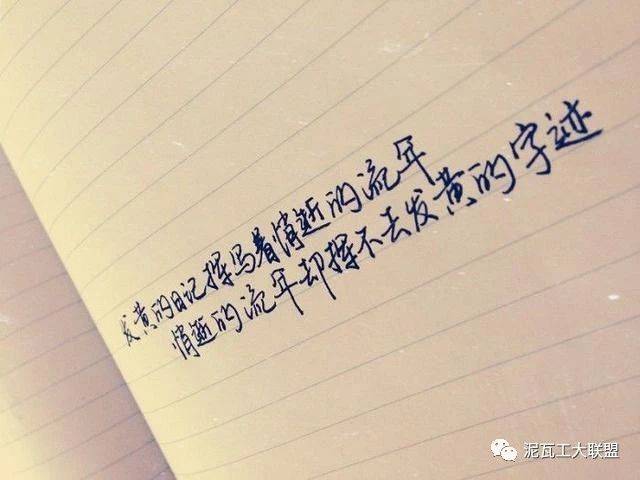 发黄的日记挥写着悄逝的流年
悄逝的流年却挥不去发黄的字迹
泥瓦工大联盟